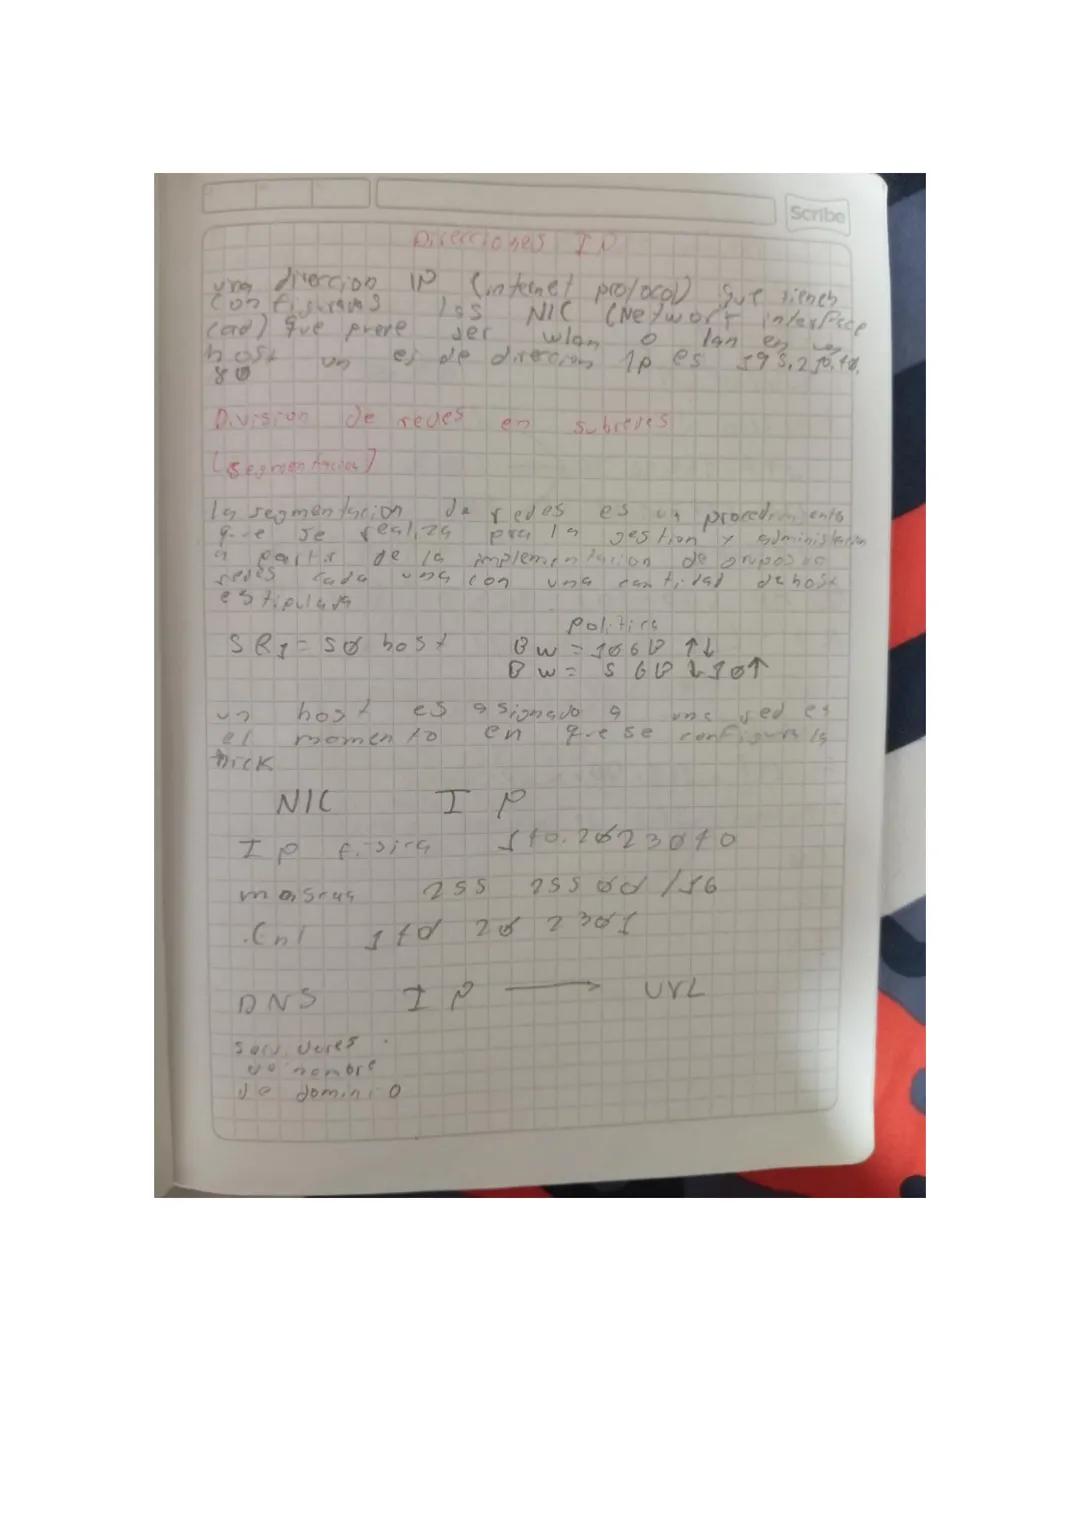 Scribe
Direcciones IP
una direccion IP (internet protocol) que tienen
configuradas las NIC (Network interface
card) que puede ser wlan o lan en un
host un ej de direccion Ip es 195.250.10.
80
Division de redes en subredes
(segmentacion)
la segmentacion de redes es un procedimiento
que se realiza para la gestion y administracion
a partir de la implementacion de grupos de
redes cada una con una cantidad de host
estipulada
politica
SR1 = 50 host BW = 10GB ↑↓
BW = 5GB ↓10↑
un host es asignado a una red es
el momento en que se configura la
nick
NIC IP
Ip fisica 170.20 230 70
mascara 255 255 0 0 /16
170 20 230 1
DNS IP → URL
servidores
de nombre
de dominio